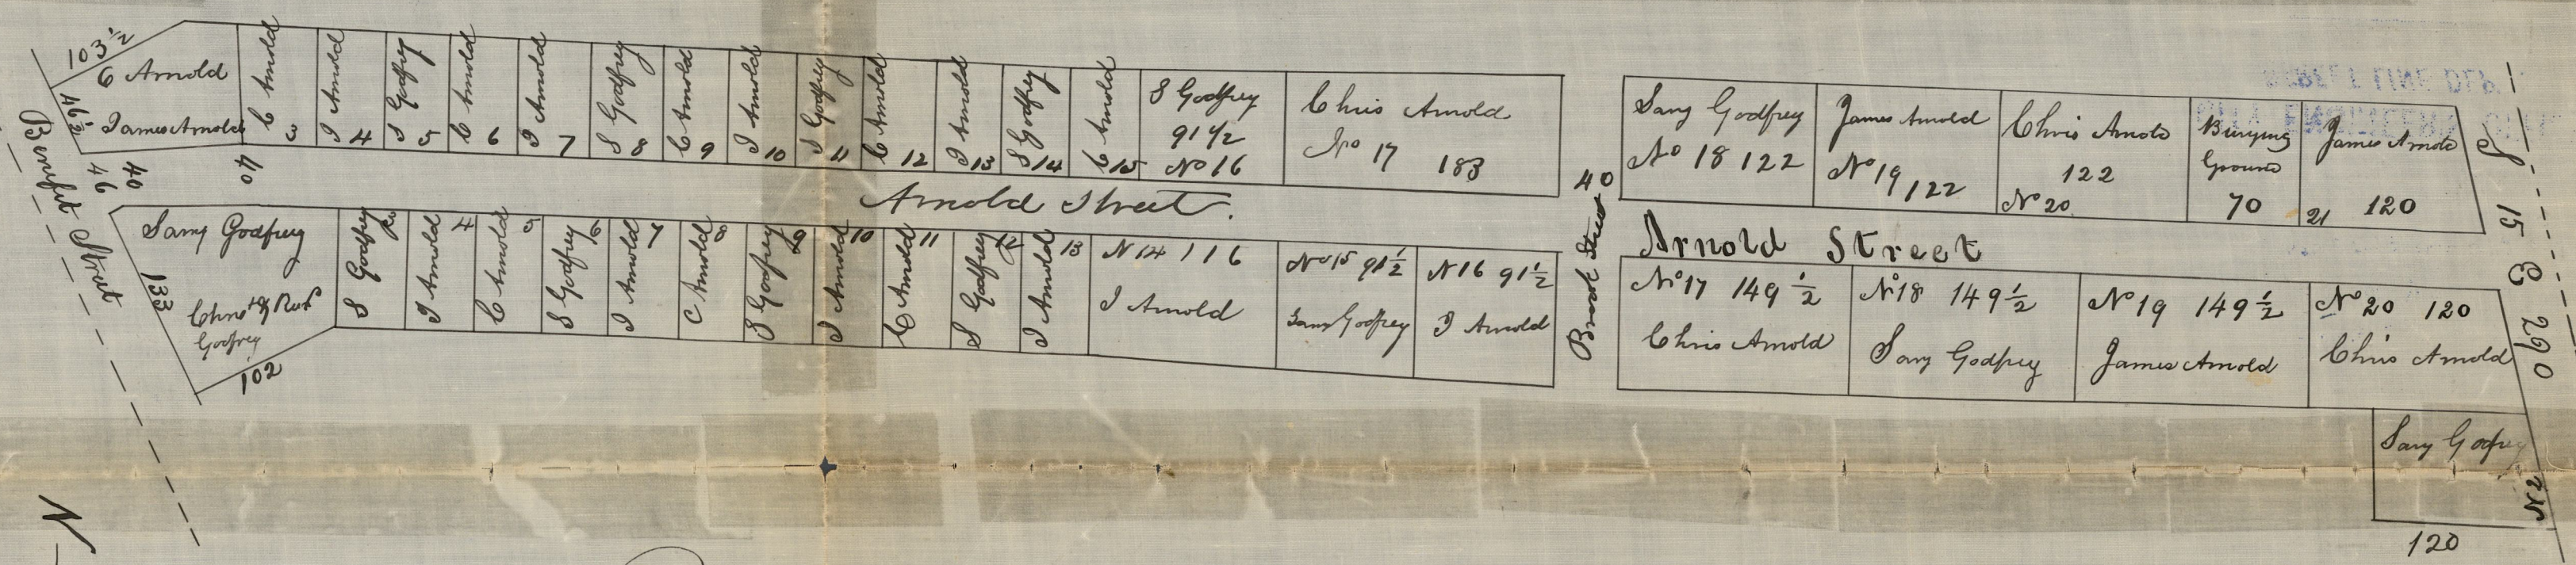 103 ½
C Arnold
46½
James Arnold
C Arnold
3
J Arnold
4
S Godfrey
5
C Arnold
6
J Arnold
7
S Godfrey
8
C Arnold
9
J Arnold
10
S Godfrey
11
C Arnold
12
J Arnold
13
S Godfrey
14
C Arnold
15
S Godfrey
91 ½
No 16
Chris Arnold
No 17 183
Samy Godfrey
No 18 122
James Arnold
No 19 122
Chris Arnold
122
No 20
Burying
Ground
70
James Arnold
21 120
STREET LINE DEPT.
CITY ENGINEERS
Benefit Street
46
40
40
Arnold Street.
40
Brook Street
Arnold Street
S 15 E 290
Samy Godfrey
133
Godfrey
102
S Godfrey
J Arnold
4
C Arnold
5
S Godfrey
6
J Arnold
7
C Arnold
8
S Godfrey
9
J Arnold
10
C Arnold
11
S Godfrey
12
J Arnold
13
N 14 116
J Arnold
No 15 91½
Samy Godfrey
N 16 91½
J Arnold
No 17 149 ½
Chris Arnold
No 18 149 ½
Samy Godfrey
No 19 149 ½
James Arnold
No 20 120
Chris Arnold
Samy Godfrey
120
N